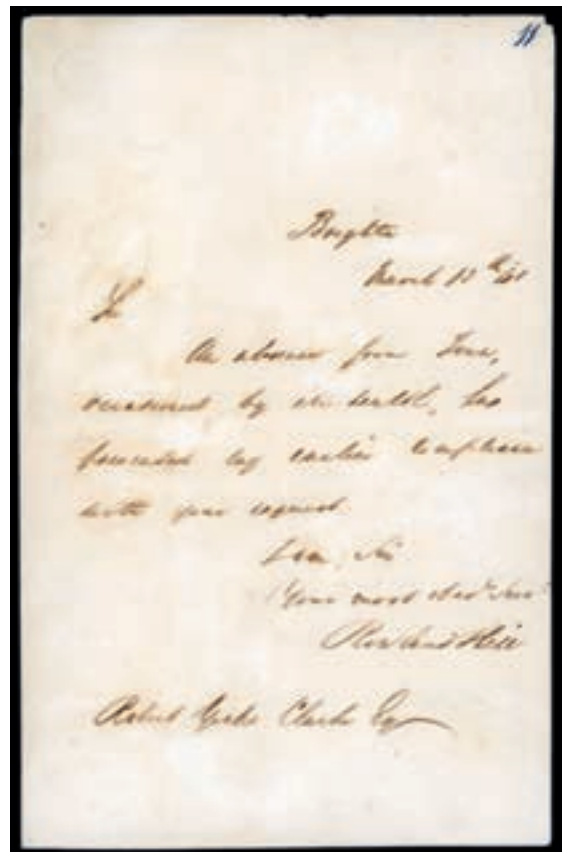 11
Brighton
March 10th 40
Sir
An absence from Town,
occasioned by ill health, has
prevented my earlier compliance
with your request
I am, Sir
Your most obedt Servt
Rowland Hill
Robert Clarke Esq